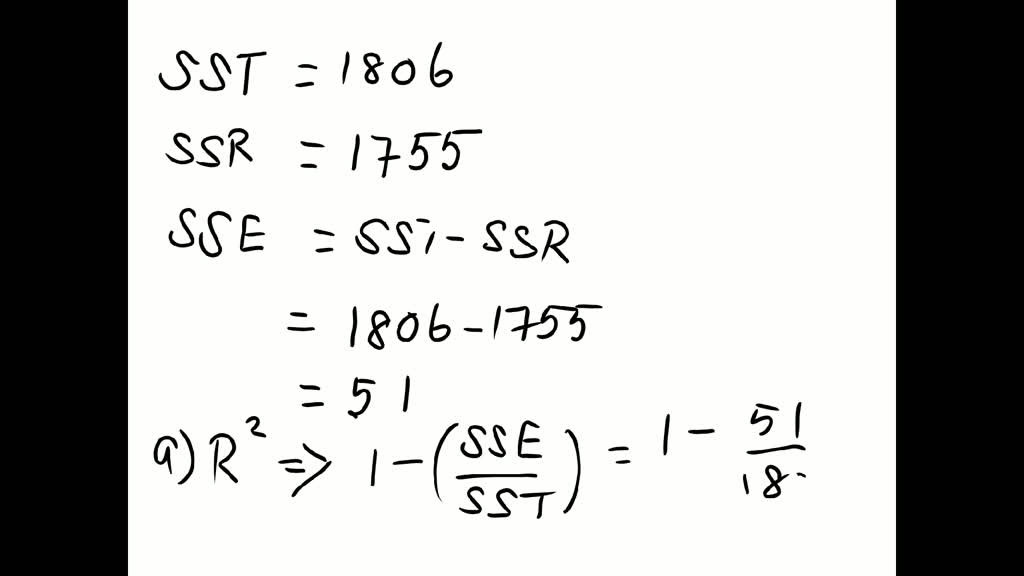 SST = 1806
SSR = 1755
SSE = SST - SSR
= 1806 - 1755
= 51
a) R² => 1 - (SSE/SST) = 1 - 51/18